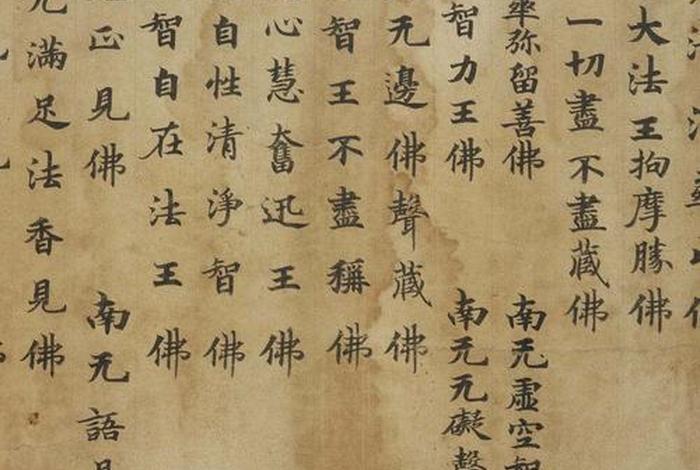 大法王拘摩勝佛
一切盡不盡藏佛
弥留善佛 南无虛空
智力王佛 南无无礙聲
无邊佛聲藏佛
智王不盡稱佛
心慧奮迅王佛
自性清淨智佛
智自在法王佛
正見佛 南无語見
滿足法香見佛